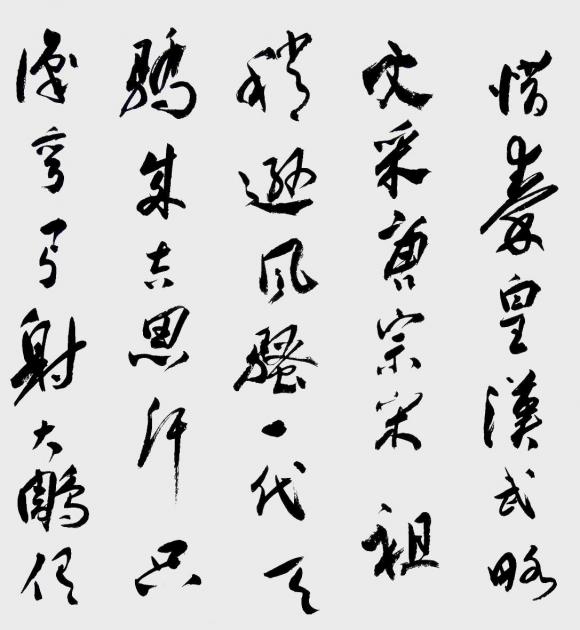 惜秦皇漢武略
文采唐宗宋祖
稍遜风騷一代天
驕成吉思汗只
識彎弓射大鵰俱